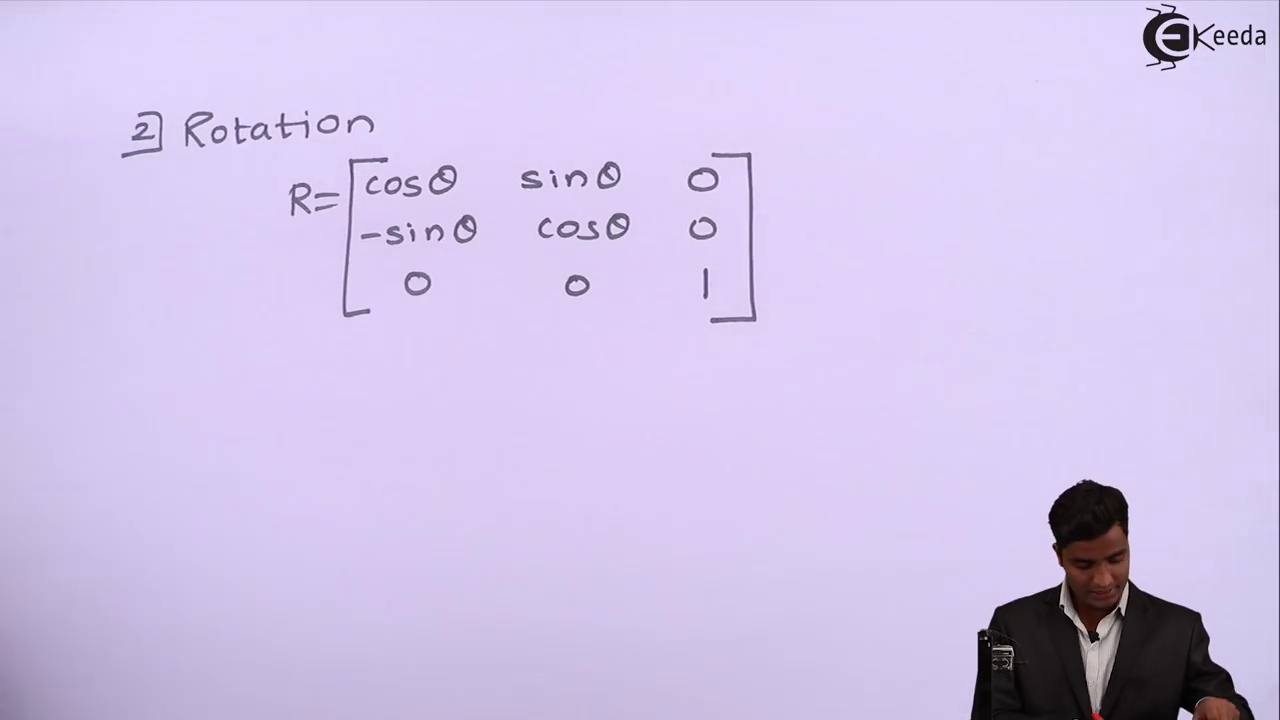 EKeeda
2] Rotation
R= [ cosθ sinθ 0
-sinθ cosθ 0
0 0 1 ]